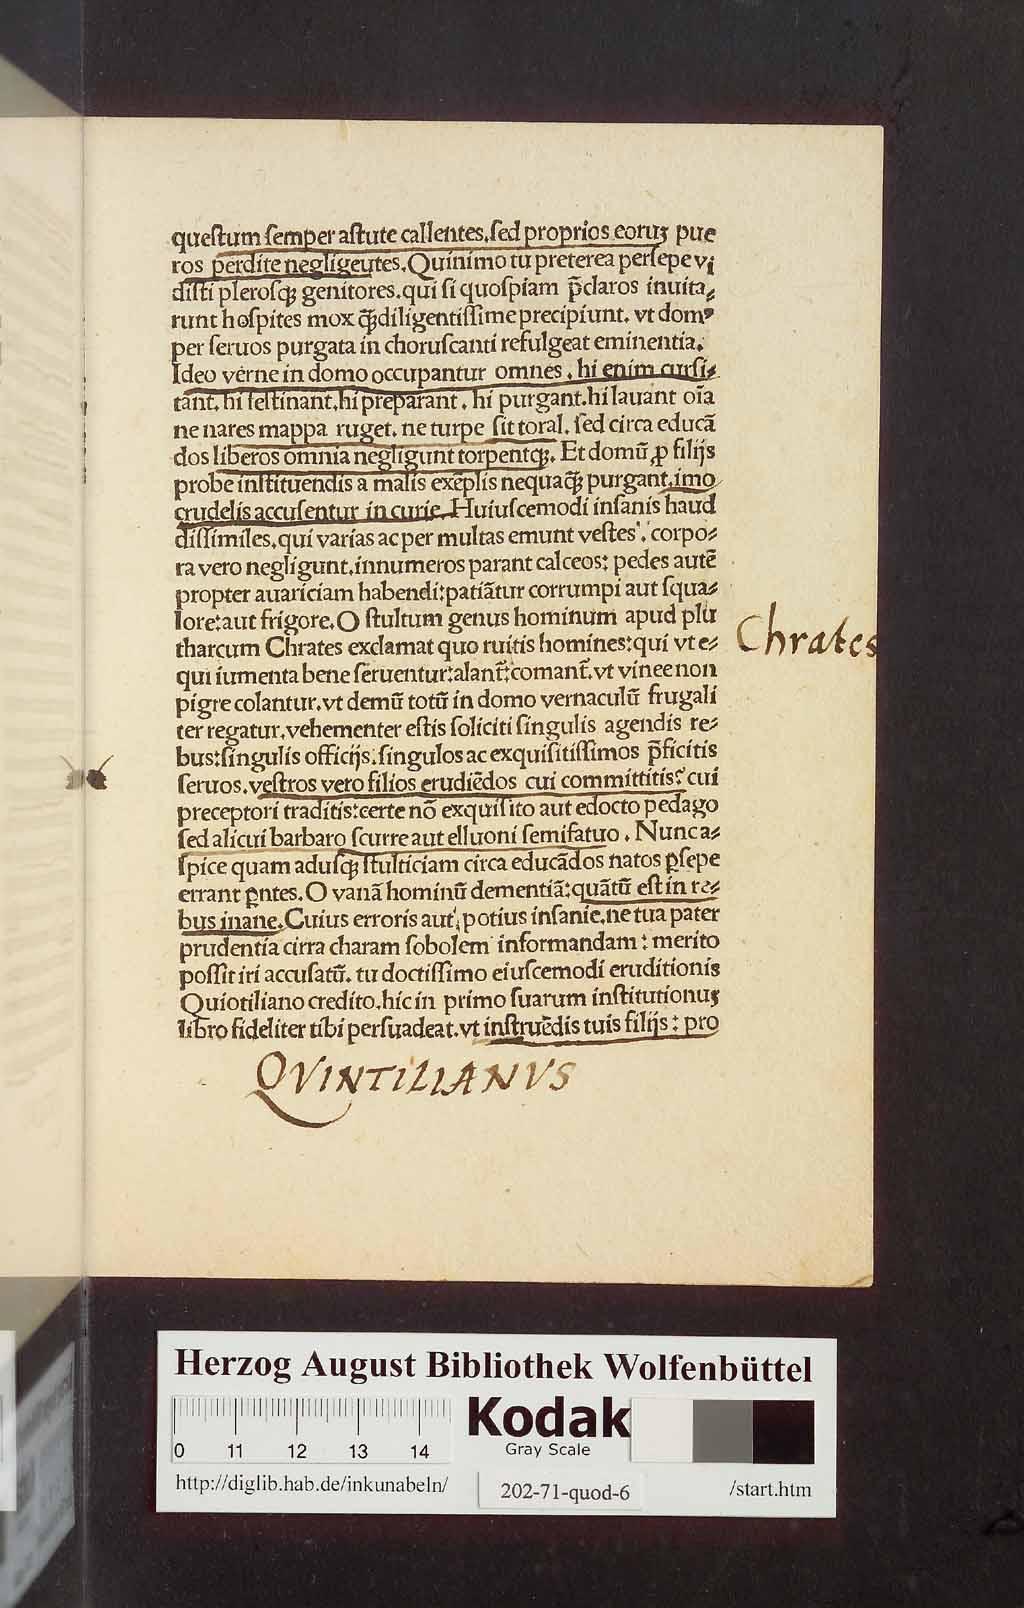 queſtum ſemper aſtute callentes.ſed proprios eoruꝫ pue
ros perdite negligeutes.Quinimo tu preterea perſepe vi
diſti pleroſqꝫ genitores.qui ſi quoſpiam p̄claros inuita⸗
runt hoſpites mox qꝫ̄diligentiſſime precipiunt. vt domꝰ
per ſeruos purgata in choruſcanti refulgeat eminentia.
Ideo verne in domo occupantur omnes . hi enim curſi⸗
tant. hi feſtinant.hi preparant . hi purgant.hi lauant oīa
ne nares mappa ruget. ne turpe ſit toral. ſed circa educā
dos liberos omnia negligunt torpentqꝫ. Et domū ꝓ filijs
probe inſtituendis a malis exēplis nequaqꝫ̄ purgant.imo
crudelis accuſentur in curie. Huiuſcemodi inſanis haud
diſſimiles.qui varias ac per multas emunt veſtes . corpo⸗
ra vero negligunt.innumeros parant calceos: pedes autē
propter auariciam habendi:patiātur corrumpi aut ſqua⸗
lore:aut frigore.O ſtultum genus hominum apud plu
tharcum Chrates exclamat quo ruitis homines:qui vt e⸗
qui iumenta bene ſeruentur:alant̄:comant̄.vt vinee non
pigre colantur.vt demū totū in domo vernaculū frugali
ter regatur.vehementer eſtis ſoliciti ſingulis agendis re⸗
bus:ſingulis officijs.ſingulos ac exquiſitiſſimos p̄ficitis
ſeruos.veſtros vero filios erudiēdos cui committitis? cui
preceptori traditis:certe nō exquiſito aut edocto pedago
ſed alicui barbaro ſcurre aut elluoni ſemifatuo . Nunc a⸗
ſpice quam aduſqꝫ ſtulticiam circa educādos natos ꝑſepe
errant pn̄tes. O vanā hominū dementiā:quātū eſt in re⸗
bus inane.Cuius erroris aut potius inſanie.ne tua pater
prudentia cirra charam ſobolem informandam : merito
poſſit iri accuſatū. tu doctiſſimo eiuſcemodi eruditionis
Quiotiliano credito.hic in primo ſuarum inſtitutionuꝫ
libro fideliter tibi perſuadeat.vt inſtruēdis tuis filijs : pro
Chrates
QVINTILIANVS
Herzog August Bibliothek Wolfenbüttel
0 11 12 13 14
Kodak
Gray Scale
http://diglib.hab.de/inkunabeln/
202-71-quod-6
/start.htm